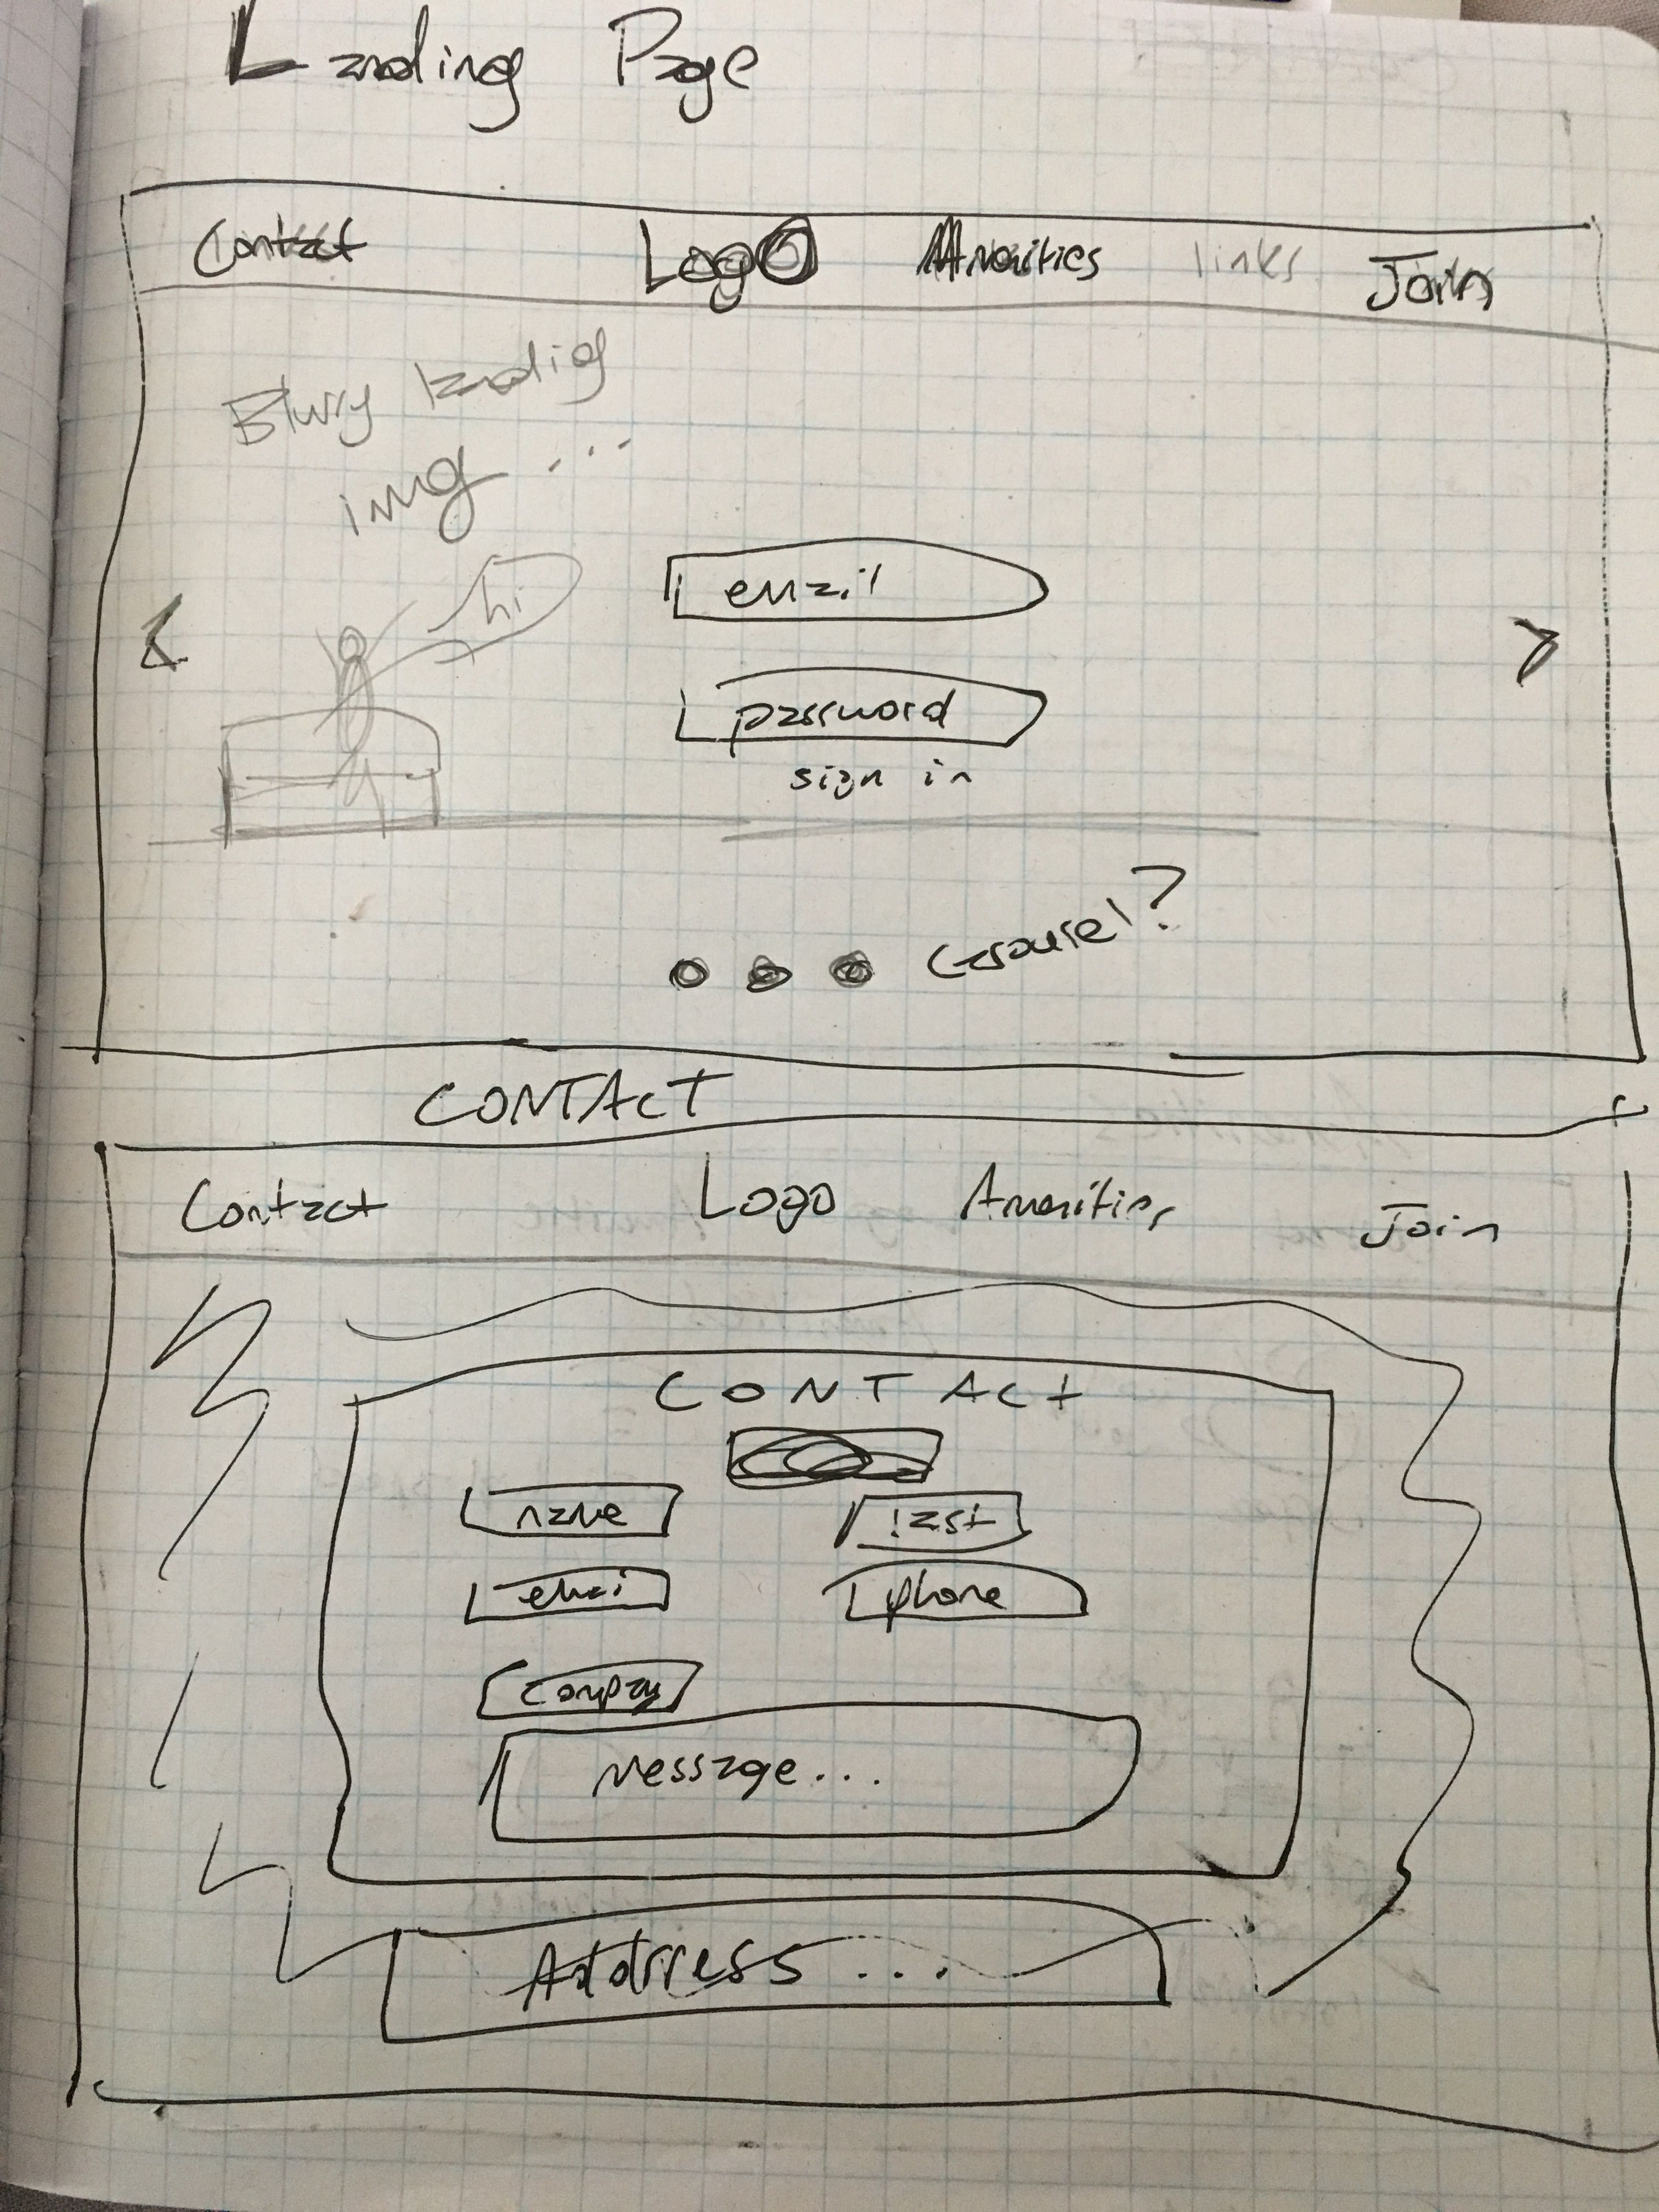 Landing Page
Contact Logo Amenities links Join
Blurry landig
img ...
hi
email
<
>
password
sign in
Carousel?
CONTACT
Contact Logo Amenities Join
CONTACT
name last
emai phone
Company
Message...
Address...